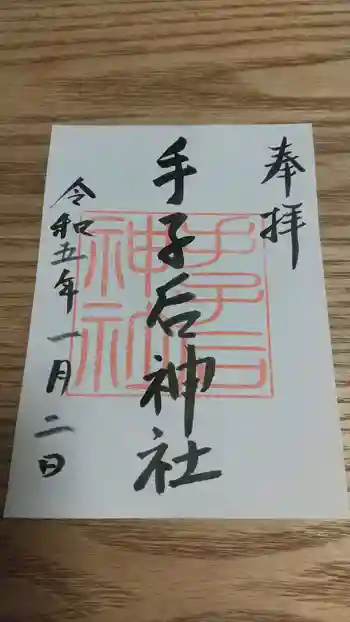 奉拝
手子后神社
手子后神社
令和五年一月二日